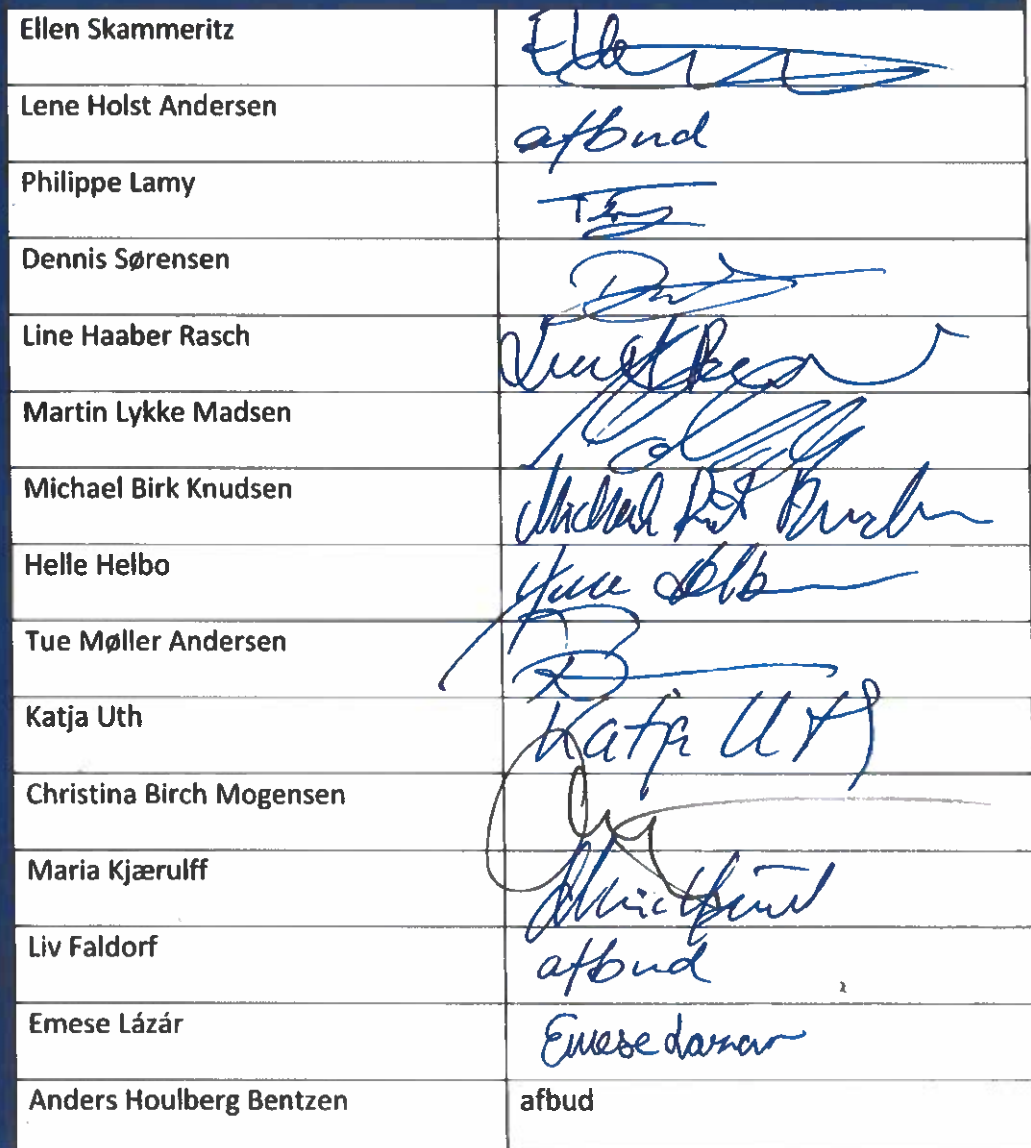 Ellen Skammeritz
Lene Holst Andersen afbud
Philippe Lamy
Dennis Sørensen
Line Haaber Rasch
Martin Lykke Madsen
Michael Birk Knudsen Michael Birk Knudsen
Helle Helbo
Tue Møller Andersen
Katja Uth Katja Uth
Christina Birch Mogensen
Maria Kjærulff
Liv Faldorf afbud
Emese Lázár Emese Lazar
Anders Houlberg Bentzen afbud